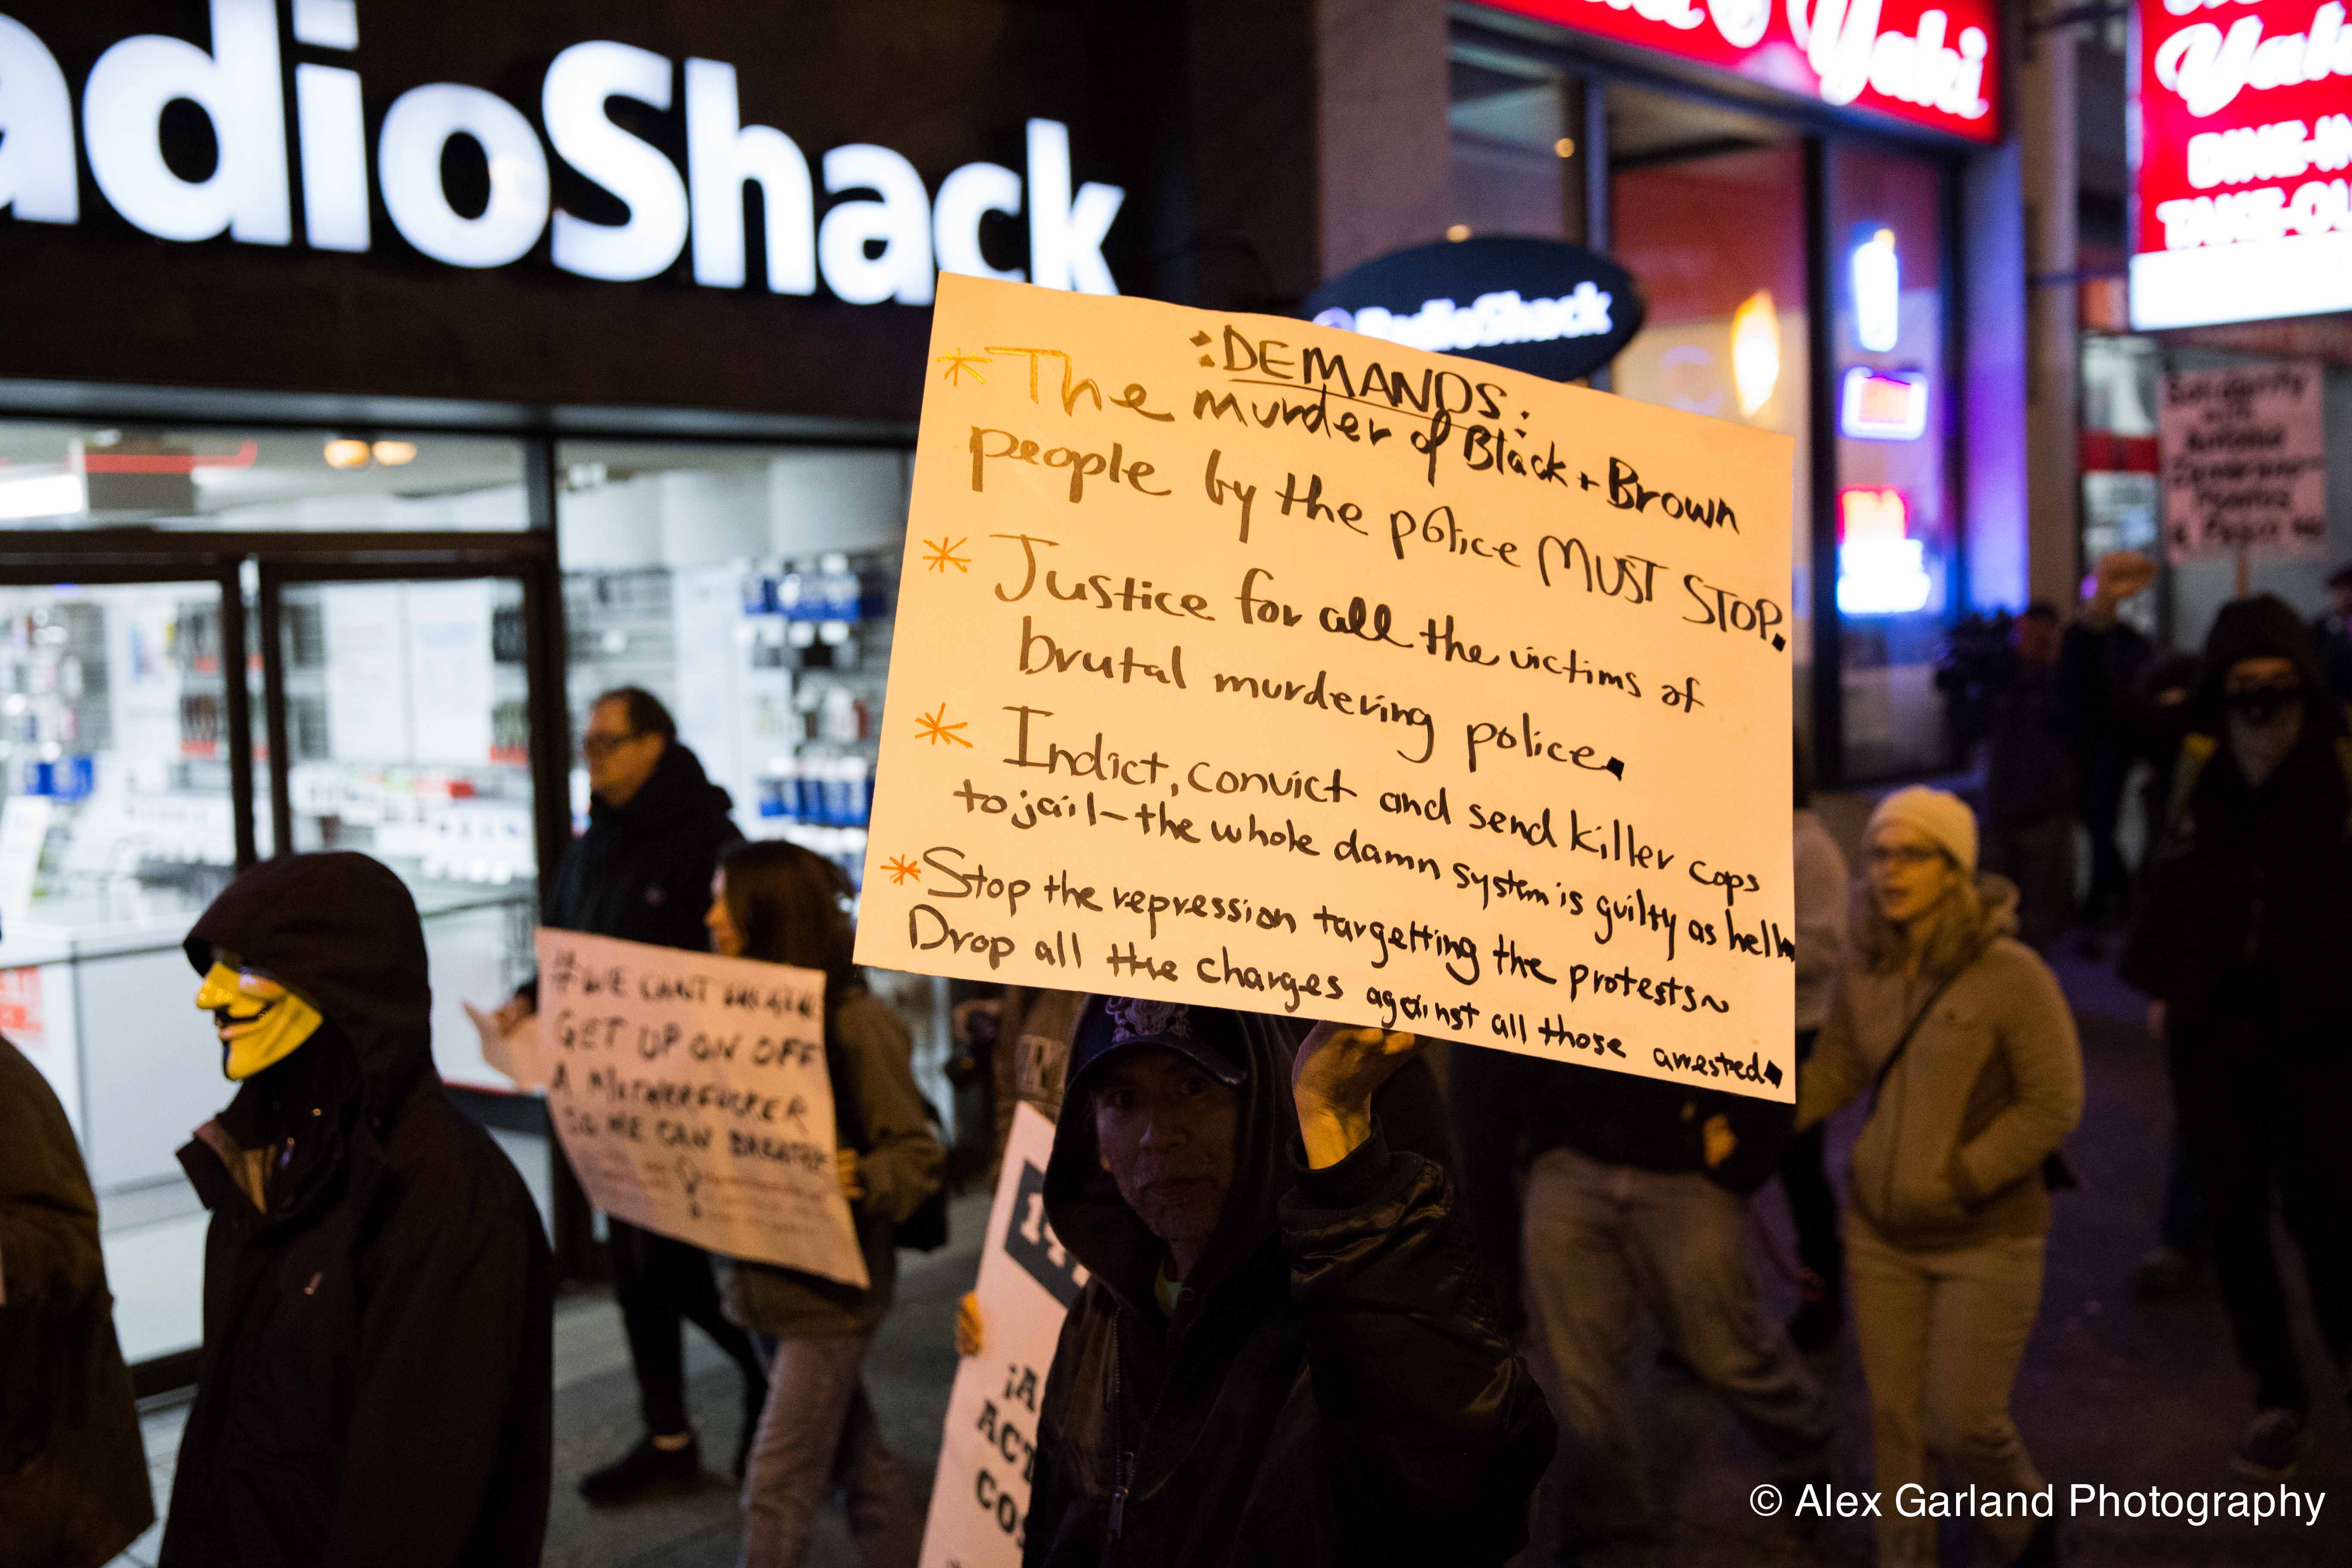 adioShack
Yaki
Yak
DINE-IN
TAKE-OU
RadioShack
:DEMANDS:
* The murder of Black + Brown
people by the police MUST STOP.
* Justice for all the victims of
brutal murdering police.
* Indict, convict and send killer cops
to jail - the whole damn system is guilty as hell.
* Stop the repression targetting the protests ~
Drop all the charges against all those arrested.
Solidarity
#WE CAN'T BREATHE
GET UP ON OFF
A MOTHERFUCKER
SO WE CAN BREATHE
¡A
ACT
CO
© Alex Garland Photography